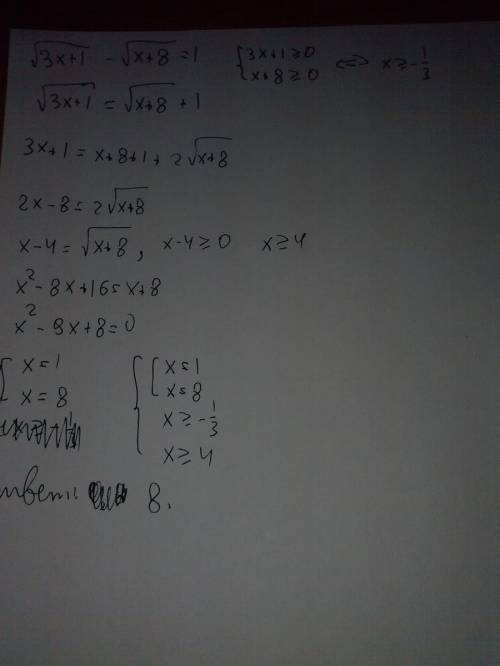 √(3x+1) - √(x+8) = 1 { 3x+1 ≥ 0 x+8 ≥ 0 <=> x ≥ -1/3
√(3x+1) = √(x+8) + 1
3x+1 = x+8+1+2√(x+8)
2x-8 = 2√(x+8)
x-4 = √(x+8), x-4 ≥ 0 x ≥ 4
x²-8x+16 = x+8
x²-9x+8=0
[ x=1 { [ x=1
x=8 x=8
x ≥ -1/3
x ≥ 4
твет: 8.